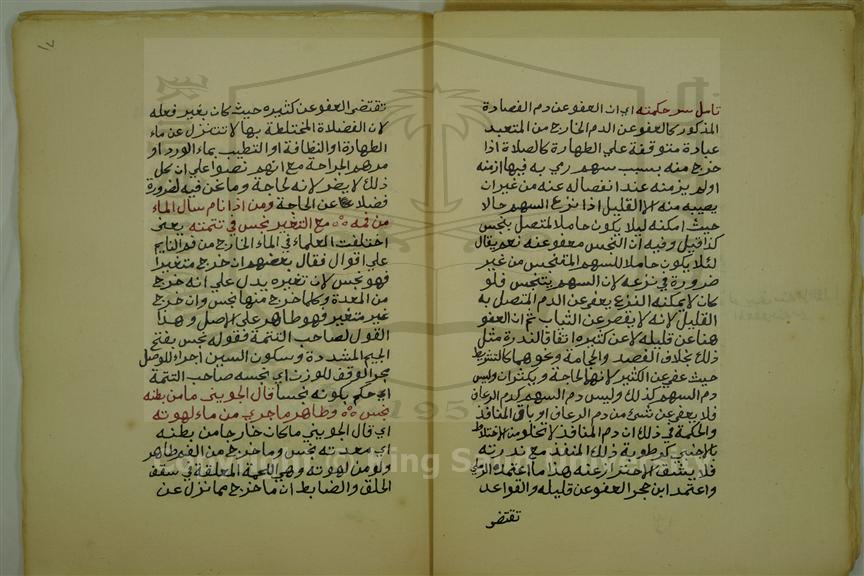 تامل سر حكمته اي ان العفو عن دم الفصادة
المذكور كالعفو عن الدم الخارج من المتعبد
عبادة متوقفة علي الطهارة كالصلاة اذا
خرج منه بسبب سهم رمي به فيها ازمنه
اولم يزمنه عند انفصاله عنه من غيران
يصيبه منه الا القليل اذا نزع السهم حالا
حيث امكنه ليلا يكون حاملا لمتصل بنجس
كذا قيل وفيه ان النجس معفو عنه نعم يقال
لئلا يكون حاملا للسهم المتنجس من غير
ضرورة في نزعه لان السهم يتنجس فلو
كان لا يمكنه النزع يعفي عن الدم المتصل به
القليل لانه لا يقصر عن الثياب ثم ان العفو
هنا عن قليله لا عن كثيره اتفاقا لندرة مثل
ذلك بخلاف الفصد والحجامة ونحوهما كالتشريط
حيث عفي عن الكثير لانها لحاجة ويكثران وليس
دم السهم كذلك وليس دم السهم كدم الرعاف
فلا يعفي عن شئ من دم الرعاف او باقي المنافذ
والحكمة في ذلك ان دم المنافذ لا تخلو من الاختلاط
بالاجنبي كرطوبة ذلك المنفذ مع ندرته
فلا يشق الاحتراز عنه هذا ما اعتمده الرملي
واعتمد ابن حجر العفو عن قليله والقواعد
تقتضي
١٧
تقتضي العفو عن كثيره حيث كان بغير فعله
لان الفضلاة المختلطة بها لا تتنزل عن ماء
الطهارة او النظافة او التطيب بماء الورد او
مرهم الجراحة مع انهم نصوا علي ان كل
ذلك لا يضر لانه لحاجة وما نحن فيه لضرورة
فضلا عن الحاجة ومن اذا نام سال الماء
من فمه ۞ مع التغير نجس في تتمته يعني
اختلفت العلماء في الماء الخارج من فم النايم
علي اقوال فقال بعضهم ان خرج متغيرا
فهو نجس لان تغيره يدل علي انه خرج
من المعدة وكلما خرج منها نجس وان خرج
غير متغير فهو طاهر علي الاصل وهذا
القول لصاحب التتمة فقوله نجس بفتح
الجيم المشددة وسكون السين اجراء للوصل
مجرا الوقف للوزن اي نجسه صاحب التتمة
اي حكم بكونه نجسا قال الجويني ما من بطنه
نجس ۞ وطاهر ما جري من ماء لهوته
اي قال الجويني ما كان خارجا من بطنه
اي معدته نجس وما خرج من الفم طاهر
ولو من لهوته وهي اللحمة المعلقة في سقف
الحلق والضابط ان ما خرج مما نزل عن